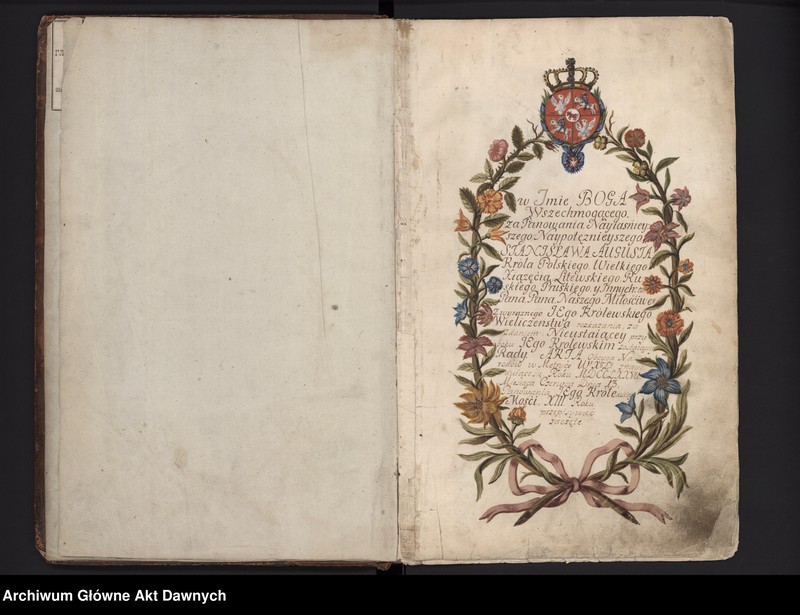 w Imie BOGA
Wszechmogącego,
za Panowania Nayiasniey
szego Naypotęznieyszego
STANISŁAWA AUGUSTA
Króla Polskiego, Wielkiego
Xiązęcia Litewskiego, Ru
skiego, Pruskiego, y Innych
Pana Pana Naszego Miłościwego
Z wyraznego JEgo Królewskiego
Wieliczenstwa rozkazania, za
Zdaniem Nieustaiącey przy
boku JEgo Królewskim
Rady AKTA
w Metryce W.X.L.
Roku MDCCLXXVII
Miesiąca Czerwca Dnia 13.
Panowania JEgo Królew
Mości XIII Roku
przepisywać
zaczęte.
Archiwum Główne Akt Dawnych